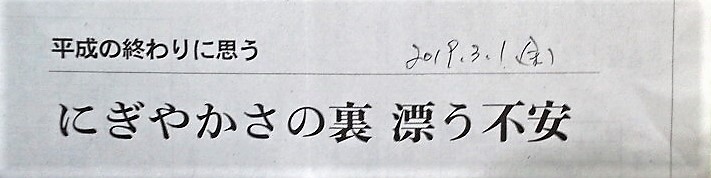 平成の終わりに思う 2019.3.1(金)
にぎやかさの裏 漂う不安